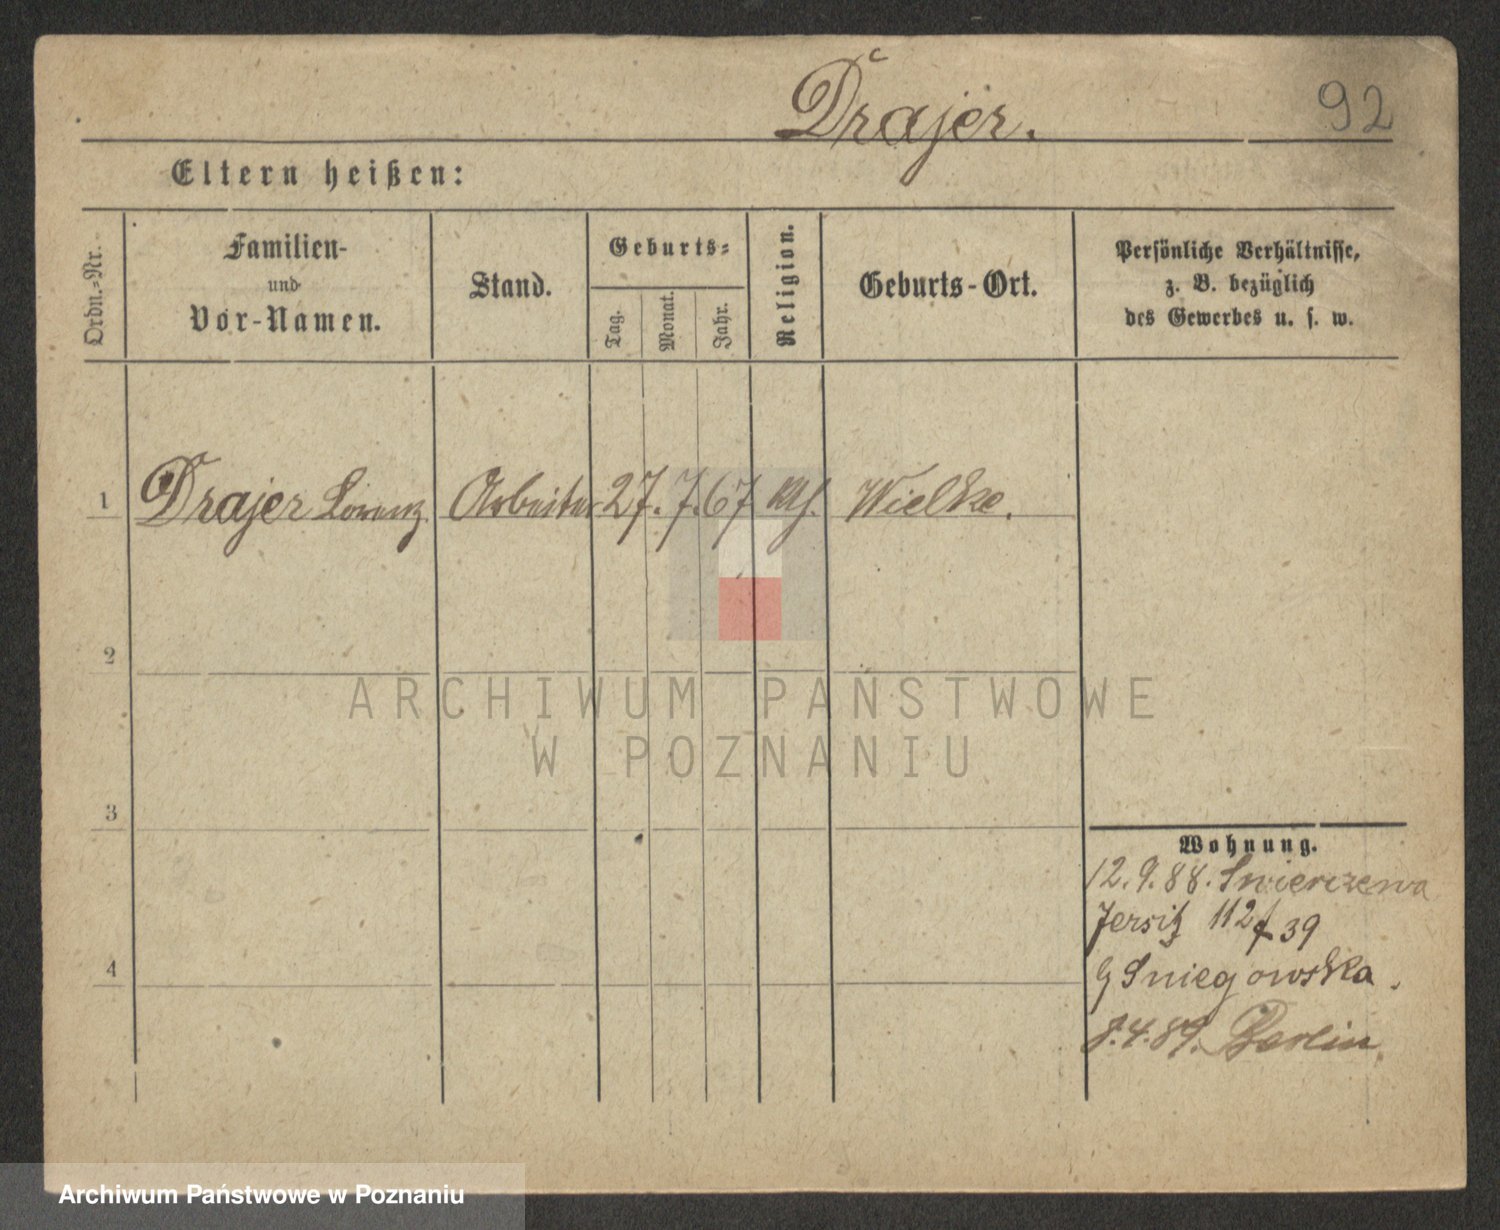 Drajer.
92
Eltern heißen:
Ordn.-Nr.
Familien-
und
Vor-Namen.
Stand.
Geburts-
Tag.
Monat.
Jahr.
Religion.
Geburts-Ort.
Persönliche Verhältnisse,
z. B. bezüglich
des Gewerbes u. s. w.
1 Drajer Lorenz. Arbeiter 27. 7. 67 Kth. Wielke.
2
3
4
ARCHIWUM PAŃSTWOWE
W POZNANIU
Wohnung.
12. 9. 88. Swierczewa
Jersitz 112 f 39
Sniegowska.
8. 4. 89. Berlin.
Archiwum Państwowe w Poznaniu